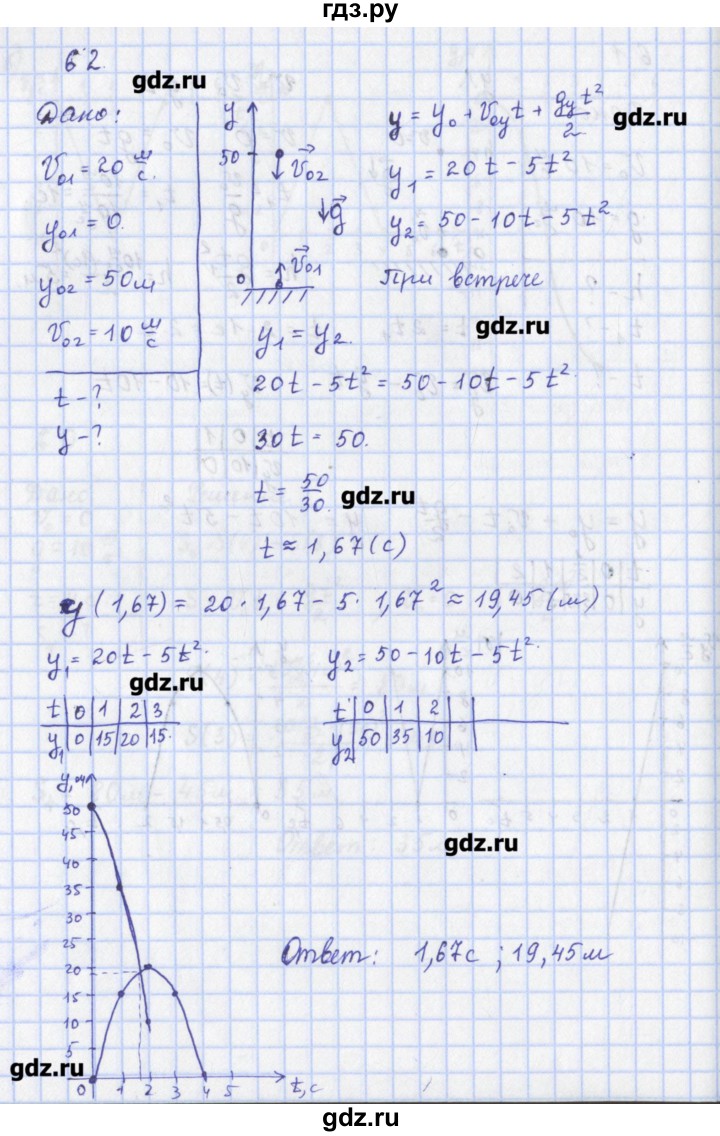 гдз.ру
62.
gdz.ru
Дано:
V₀₁ = 20 м/с.
y₀₁ = 0.
y₀₂ = 50 м
V₀₂ = 10 м/с
t - ?
y - ?
y
50
V⃗₀₂
g⃗
V⃗₀₁
0
y = y₀ + V₀yt + gyt²/2
gdz.ru
y₁ = 20t - 5t²
y₂ = 50 - 10t - 5t²
При встрече
gdz.ru
y₁ = y₂.
20t - 5t² = 50 - 10t - 5t².
30t = 50.
t = 50/30.
gdz.ru
t ≈ 1,67 (с)
y (1,67) = 20 · 1,67 - 5 · 1,67² ≈ 19,45 (м)
y₁ = 20t - 5t².
y₂ = 50 - 10t - 5t².
gdz.ru
t 0 1 2 3
y₁ 0 15 20 15.
t 0 1 2
y₂ 50 35 10
y, м
50
45
40
35
30
25
20
15
10
5
0 1 2 3 4 5 t, с
gdz.ru
Ответ: 1,67с ; 19,45м
gdz.ru
gdz.ru